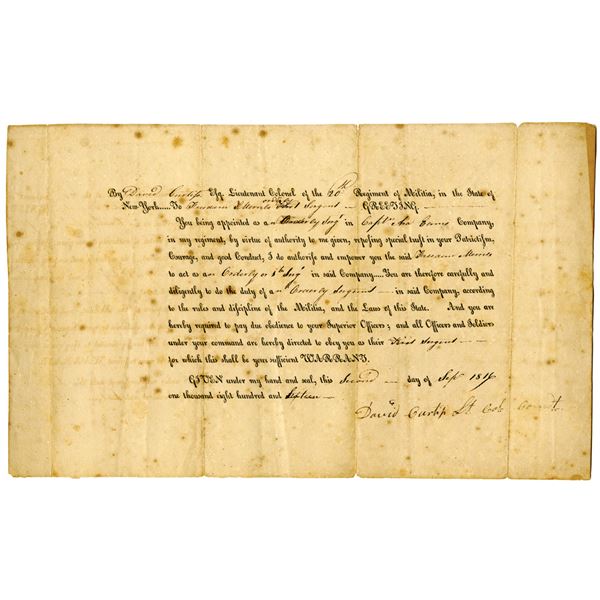 By David Curtiſs Eſq. Lieutenant Colonel of the 20th Regiment of Militia, in the State of
New-York..... To Freeman First Sergent GREETING.
You being appointed as an Orderly Sergt in Capt Asa Company,
in my regiment, by virtue of authority to me given, repoſing ſpecial truſt in your Patriotiſm,
Courage, and good Conduct, I do authoriſe and empower you the ſaid Freeman
to act as an Orderly or 1st Sergt in ſaid Company.....You are therefore carefully and
diligently to do the duty of an Orderly Sergent in ſaid Company, according
to the rules and diſcipline of the Militia, and the Laws of this State. And you are
hereby required to pay due obedience to your Superior Officers; and all Officers and Soldiers
under your command are hereby directed to obey you as their First Sergent
for which this ſhall be your ſufficient WARRANT.
GIVEN under my hand and ſeal, this Second day of Sept 1816
one thouſand eight hundred and Sixteen
David Curtiſs Lt Col Comdt